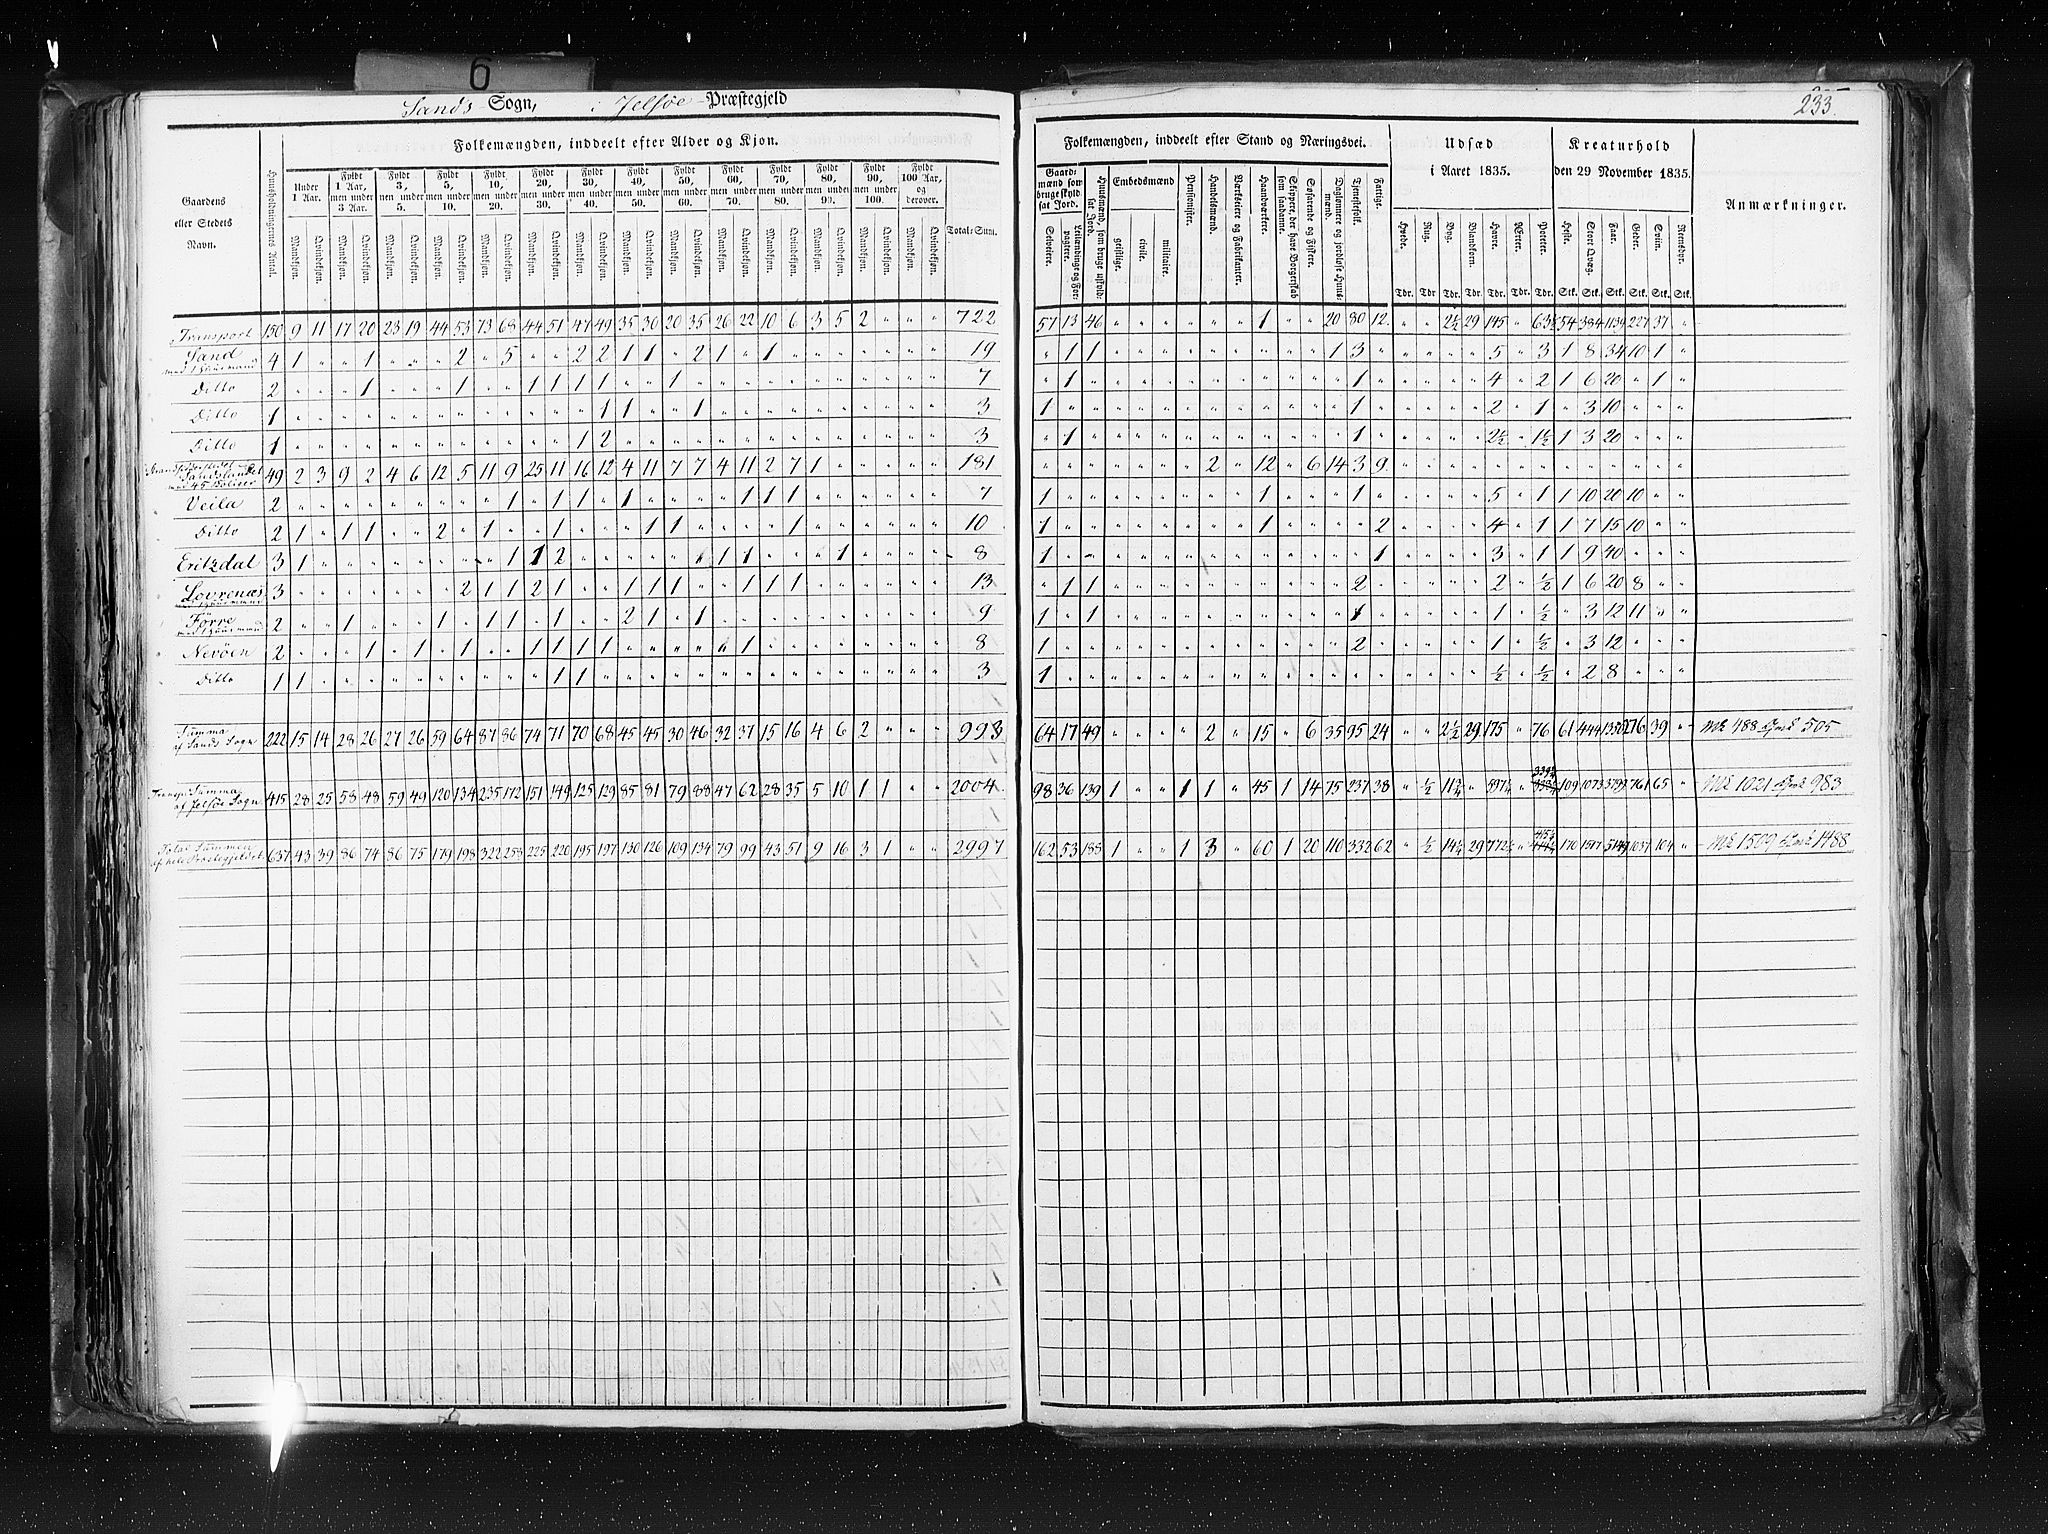 6
Sands Sogn, i Jelsøe Præstegjeld
233.
Folkemængden, inddeelt efter Alder og Kjøn.
Gaardens eller Stedets Navn.
Huusholdningernes Antal.
Under 1 Aar.
Fyldt 1 Aar, men under 3 Aar.
Fyldt 3, men under 5.
Fyldt 5, men under 10.
Fyldt 10, men under 20.
Fyldt 20, men under 30.
Fyldt 30, men under 40.
Fyldt 40, men under 50.
Fyldt 50, men under 60.
Fyldt 60, men under 70.
Fyldt 70, men under 80.
Fyldt 80, men under 90.
Fyldt 90, men under 100.
Fyldt 100 Aar, og derover.
Mandkjøn. Qvindekjøn.
Total-Sum.
Folkemængden, inddeelt efter Stand og Næringsvei.
Gaardmænd som bruge skyldsat Jord.
Selveiere.
Leilændinge og Forpagtere.
Huusmænd, som bruge uskyldsat Jord.
Embedsmænd
geistlige. civile. militaire.
Pensionister.
Handelsmænd.
Værkseiere og Fabrikanter.
Haandværkere.
Skippere, der have Borgerskab som saadanne.
Søfarende og Fiskere.
Dagslønnere og jordløse Huusmænd.
Tjenestefolk.
Fattige.
Udsæd i Aaret 1835.
Hvede. Rug. Byg. Blandkorn. Havre. Ærter. Poteter.
Tdr. Tdr. Tdr. Tdr. Tdr. Tdr. Tdr.
Kreaturhold den 29 November 1835.
Heste. Stort Qvæg. Faar. Geder. Sviin. Reensdyr.
Stk. Stk. Stk. Stk. Stk. Stk.
Anmærkninger.
Transport 150 9 11 17 20 23 19 44 53 73 68 44 51 47 49 35 30 20 35 26 22 10 6 3 5 2 " " " 722 57 13 46 " " " " " " 1 " " 20 80 12 " " 2½ 29 145 " 63½ 54 384 1134 227 37 "
Sand med 1 Huusmand 4 1 " " 1 " " " 2 " 5 " " 2 2 1 1 " 2 1 " 1 " " " " " " " 19 " 1 1 " " " " " " " " " 1 3 " " " " " 5 " 3 1 8 34 10 1 "
Ditto 2 " " " 1 " " " 1 " " 1 1 1 1 " " 1 " " " " " " " " " " " 7 " 1 " " " " " " " " " " " 1 " " " " " 4 " 2 1 6 20 " 1 "
Ditto 1 " " " " " " " " " " " " " 1 1 " " 1 " " " " " " " " " " 3 1 " " " " " " " " " " " " 1 " " " " " 2 " 1 " 3 10 " " "
Ditto 1 " " " " " " " " " " " " 1 2 " " " " " " " " " " " " " " 3 " 1 " " " " " " " " " " " 1 " " " " " 2½ " 1½ 1 3 20 " " "
49 2 3 9 2 4 6 12 5 11 9 25 11 16 12 4 11 7 7 4 11 2 7 1 " " " " " 181 " " " " " " " 2 " 12 " 6 14 3 9
Veila 2 " " " " " " " " " 1 " 1 1 " 1 " " " " 1 1 1 " " " " " " 7 1 " " " " " " " " 1 " " " 1 " " " " " 5 " 1 1 10 20 10 " "
Ditto 2 1 " 1 1 " " 2 " 1 " " 1 " " " 1 1 " " " " 1 " " " " " " 10 1 " " " " " " " " 1 " " " " 2 " " " " 4 " 1 1 7 15 10 " "
Eritzdal 3 1 " " " " " " " " 1 1 2 " " " " " " 1 1 " " " 1 " " " " 8 1 " " " " " " " " " " " " " 1 " " " " 3 " 1 1 9 40 " " "
Lovrenæs med 1 Huusmand 3 " " " " " " " 2 1 1 2 1 " " 1 1 1 " " 1 1 1 " " " " " " 13 " 1 1 " " " " " " " " " " 2 " " " " " 2 " ½ 1 6 20 8 " "
Førre med 1 Huusmand 2 " " 1 " " " 1 " 1 1 " 1 " " 2 1 " 1 " " " " " " " " " " 9 1 " 1 " " " " " " " " " " 1 " " " " " 1 " ½ " 3 12 11 " "
Nevöen 2 " " " 1 " 1 " 1 " " 1 1 1 1 " " " " " 1 " " " " " " " " 8 1 " " " " " " " " " " " " 2 " " " " " 1 " ½ " 3 12 " " "
Ditto 1 1 " " " " " " " " " " 1 1 " " " " " " " " " " " " " " " 3 1 " " " " " " " " " " " " " " " " " " ½ " ½ " 2 8 " " "
Summa af Sands Sogn 222 15 14 28 26 27 26 59 64 87 86 74 71 70 68 45 45 30 46 32 37 15 16 4 6 2 " " " 993 64 17 49 " " " " 2 " 15 " 6 35 95 24 " " 2½ 29 175 " 76 61 444 1350 276 39 " Mk 488 Qvk 505
Transp. Summa af Jelsøe Sogn 415 28 25 58 48 59 49 120 134 235 172 151 149 125 129 85 81 79 88 47 62 28 35 5 10 1 1 " " 2004 98 36 139 1 " " 1 1 " 45 1 14 75 237 38 " ½ 11¾ " 597¼ " 339¼ 109 1073 3799 761 65 " Mk 1021 Qvk 983
Total Summen af hele Præstegjeldet 637 43 39 86 74 86 75 179 198 322 258 225 220 195 197 130 126 109 134 79 99 43 51 9 16 3 1 " " 2997 162 53 188 1 " " 1 3 " 60 1 20 110 332 62 " ½ 14¼ 29 772¼ " 415¼ 170 1517 5149 1037 104 " Mk 1509 Qvk 1488